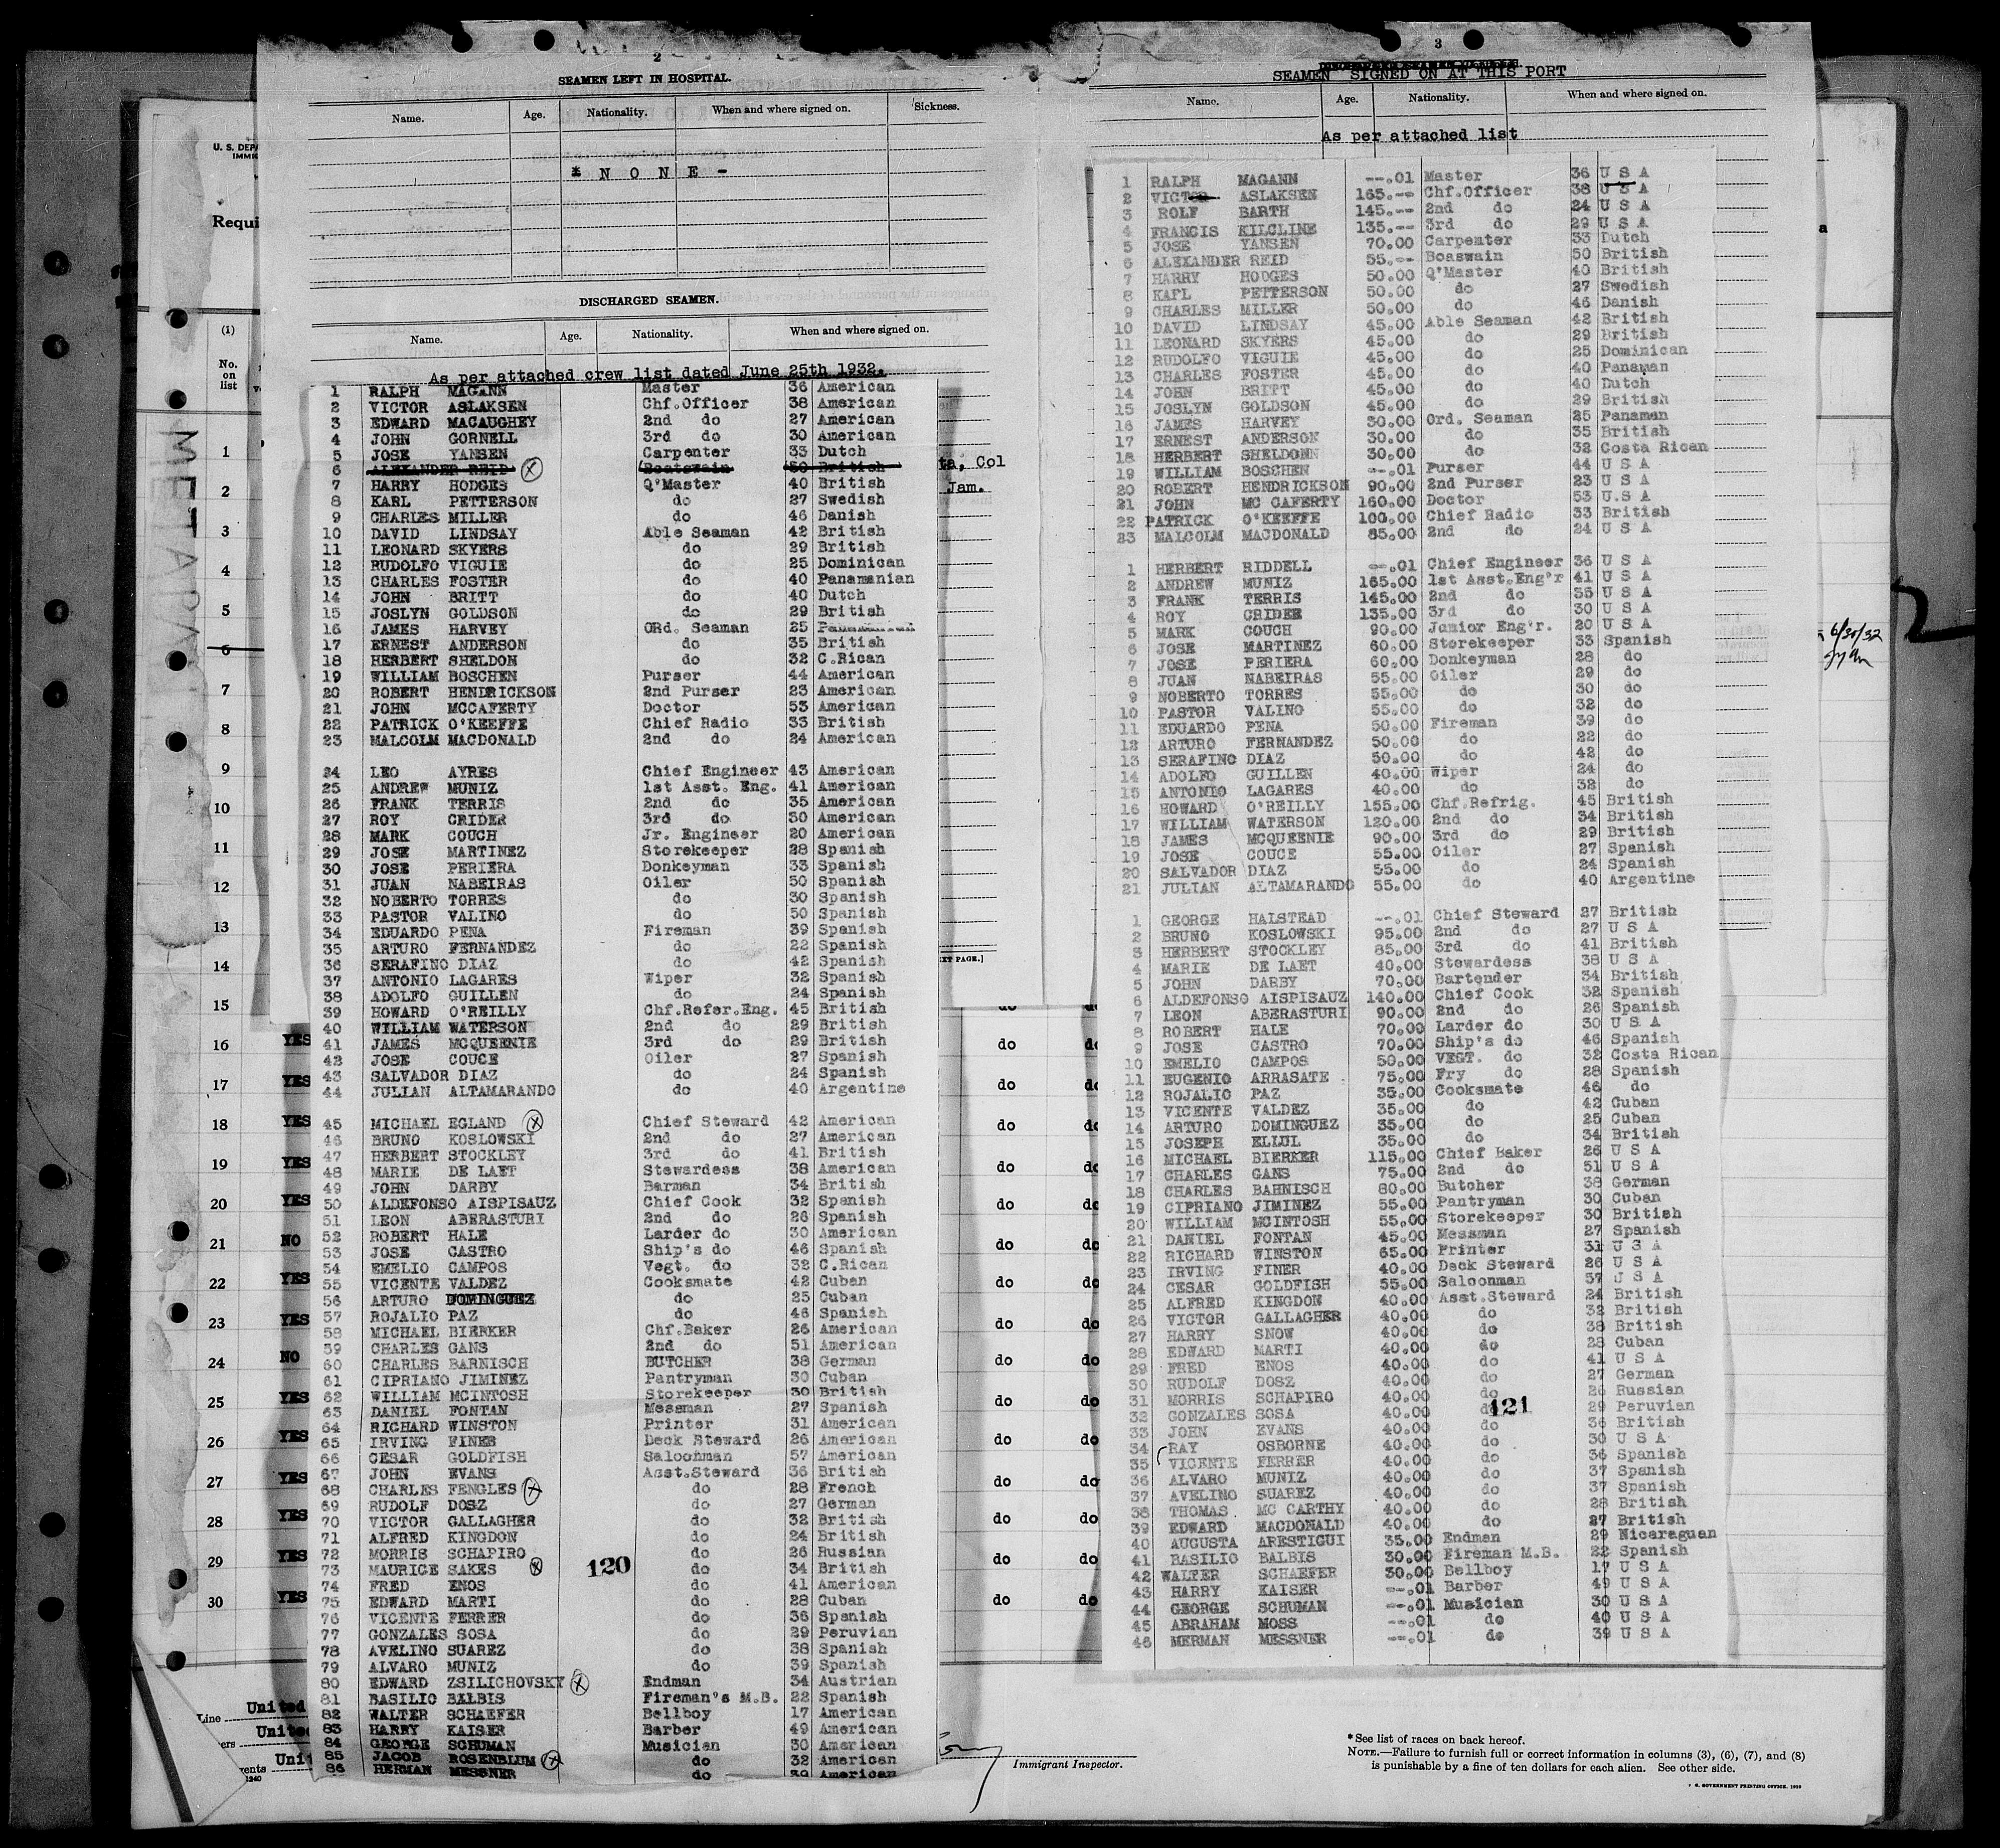 2
SEAMEN LEFT IN HOSPITAL.
Name. Age. Nationality. When and where signed on. Sickness.
* N O N E -
DISCHARGED SEAMEN.
Name. Age. Nationality. When and where signed on.
As per attached crew list dated June 25th 1932.
1 RALPH MAGANN Master 36 American
2 VICTOR ASLAKSEN Chf.Officer 38 American
3 EDWARD MACAUGHEY 2nd do 27 American
4 JOHN GORNELL 3rd do 30 American
5 JOSE YANSEN Carpenter 33 Dutch
6 ALEXANDER REID Boatswain 50 British
7 HARRY HODGES Q'Master 40 British
8 KARL PETTERSON do 27 Swedish
9 CHARLES MILLER do 46 Danish
10 DAVID LINDSAY Able Seaman 42 British
11 LEONARD SKYERS do 29 British
12 RUDOLFO VIGUIE do 25 Dominican
13 CHARLES FOSTER do 40 Panamanian
14 JOHN BRITT do 40 Dutch
15 JOSLYN GOLDSON do 29 British
16 JAMES HARVEY ORd. Seaman 25 Panamanian
17 ERNEST ANDERSON do 35 British
18 HERBERT SHELDON do 32 C.Rican
19 WILLIAM BOSCHEN Purser 44 American
20 ROBERT HENDRICKSON 2nd Purser 23 American
21 JOHN MCCAFERTY Doctor 53 American
22 PATRICK O'KEEFFE Chief Radio 33 British
23 MALCOLM MACDONALD 2nd do 24 American
24 LEO AYRES Chief Engineer 43 American
25 ANDREW MUNIZ 1st Asst. Eng. 41 American
26 FRANK TERRIS 2nd do 35 American
27 ROY CRIDER 3rd do 30 American
28 MARK COUCH Jr. Engineer 20 American
29 JOSE MARTINEZ Storekeeper 28 Spanish
30 JOSE PERIERA Donkeyman 33 Spanish
31 JUAN NABEIRAS Oiler 50 Spanish
32 NOBERTO TORRES do 30 Spanish
33 PASTOR VALINO do 50 Spanish
34 EDUARDO PENA Fireman 39 Spanish
35 ARTURO FERNANDEZ do 22 Spanish
36 SERAFINO DIAZ do 42 Spanish
37 ANTONIO LAGARES Wiper 32 Spanish
38 ADOLFO GUILLEN do 24 Spanish
39 HOWARD O'REILLY Chf.Refer.Eng. 45 British
40 WILLIAM WATERSON 2nd do 29 British
41 JAMES MCQUEENIE 3rd do 29 British
42 JOSE COUCE Oiler 27 Spanish
43 SALVADOR DIAZ do 24 Spanish
44 JULIAN ALTAMARANDO do 40 Argentine
45 MICHAEL EGLAND Chief Steward 42 American
46 BRUNO KOSLOWSKI 2nd do 27 American
47 HERBERT STOCKLEY 3rd do 41 British
48 MARIE DE LAET Stewardess 38 American
49 JOHN DARBY Barman 34 British
50 ALDEFONSO AISPISAUZ Chief Cook 32 Spanish
51 LEON ABERASTURI 2nd do 26 Spanish
52 ROBERT HALE Larder do 30 American
53 JOSE CASTRO Ship's do 46 Spanish
54 EMELIO CAMPOS Vegt. do 32 C.Rican
55 VICENTE VALDEZ Cooksmate 42 Cuban
56 ARTURO DOMINGUEZ do 25 Cuban
57 ROJALIO PAZ do 46 Spanish
58 MICHAEL BIERKER Chf.Baker 26 American
59 CHARLES GANS 2nd do 51 American
60 CHARLES BARNISCH BUTCHER 38 German
61 CIPRIANO JIMINEZ Pantryman 30 Cuban
62 WILLIAM MCINTOSH Storekeeper 30 British
63 DANIEL FONTAN Messman 27 Spanish
64 RICHARD WINSTON Printer 31 American
65 IRVING FINER Deck Steward 26 American
66 CESAR GOLDFISH Saloonman 57 American
67 JOHN EVANS Asst.Steward 36 British
68 CHARLES FENGLES do 28 French
69 RUDOLF DOSZ do 27 German
70 VICTOR GALLAGHER do 32 British
71 ALFRED KINGDON do 24 British
72 MORRIS SCHAPIRO do 26 Russian
73 MAURICE SAKES 120 do 34 British
74 FRED ENOS do 41 American
75 EDWARD MARTI do 28 Cuban
76 VICENTE FERRER do 36 Spanish
77 GONZALES SOSA do 29 Peruvian
78 AVELINO SUAREZ do 38 Spanish
79 ALVARO MUNIZ do 39 Spanish
80 EDWARD ZSILICHOVSKY Endman 34 Austrian
81 BASILIO BALBIS Fireman's M.B. 22 Spanish
82 WALTER SCHAEFER Bellboy 17 American
83 HARRY KAISER Barber 49 American
84 GEORGE SCHUMAN Musician 30 American
85 JACOB ROSENBLUM do 32 American
86 HERMAN MESSNER do 39 American
3
SEAMEN SIGNED ON AT THIS PORT
Name. Age. Nationality. When and where signed on.
As per attached list
1 RALPH MAGANN --.01 Master 36 U S A
2 VICTOR ASLAKSEN 165.-- Chf.Officer 38 U S A
3 ROLF BARTH 145.-- 2nd do 24 U S A
4 FRANCIS KILCLINE 135.-- 3rd do 29 U S A
5 JOSE YANSEN 70.00 Carpenter 33 Dutch
6 ALEXANDER REID 55.-- Boaswain 50 British
7 HARRY HODGES 50.00 Q'Master 40 British
8 KARL PETTERSON 50.00 do 27 Swedish
9 CHARLES MILLER 50.00 do 46 Danish
10 DAVID LINDSAY 45.00 Able Seaman 42 British
11 LEONARD SKYERS 45.00 do 29 British
12 RUDOLFO VIGUIE 45.00 do 25 Dominican
13 CHARLES FOSTER 45.00 do 40 Panaman
14 JOHN BRITT 45.00 do 40 Dutch
15 JOSLYN GOLDSON 45.00 do 29 British
16 JAMES HARVEY 30.00 Ord. Seaman 25 Panaman
17 ERNEST ANDERSON 30.00 do 35 British
18 HERBERT SHELDONN 30.00 do 32 Costa Rican
19 WILLIAM BOSCHEN --.01 Purser 44 U S A
20 ROBERT HENDRICKSON 90.00 2nd Purser 23 U S A
21 JOHN MC CAFERTY 160.00 Doctor 53 U.S A
22 PATRICK O'KEEFFE 100.00 Chief Radio 33 British
23 MALCOLM MACDONALD 85.00 2nd do 24 U S A
1 HERBERT RIDDELL --.01 Chief Engineer 36 U S A
2 ANDREW MUNIZ 165.00 1st Asst.Eng'r 41 U S A
3 FRANK TERRIS 145.00 2nd do 35 U S A
4 ROY CRIDER 135.00 3rd do 30 U S A
5 MARK COUCH 90.00 Junior Eng'r. 20 U S A
6 JOSE MARTINEZ 60.00 Storekeeper 33 Spanish
7 JOSE PERIERA 60.00 Donkeyman 28 do
8 JUAN NABEIRAS 55.00 Oiler 29 do
9 NOBERTO TORRES 55.00 do 30 do
10 PASTOR VALINO 55.00 do 32 do
11 EDUARDO PENA 50.00 Fireman 39 do
12 ARTURO FERNANDEZ 50.00 do 22 do
13 SERAFINO DIAZ 50.00 do 42 do
14 ADOLFO GUILLEN 40.00 Wiper 24 do
15 ANTONIO LAGARES 40.00 do 32 do
16 HOWARD O'REILLY 155.00 Chf.Refrig. 45 British
17 WILLIAM WATERSON 120.00 2nd do 34 British
18 JAMES MCQUEENIE 90.00 3rd do 29 British
19 JOSE COUCE 55.00 Oiler 27 Spanish
20 SALVADOR DIAZ 55.00 do 24 Spanish
21 JULIAN ALTAMARANDO 55.00 do 40 Argentine
1 GEORGE HALSTEAD --.01 Chief Steward 27 British
2 BRUNO KOSLOWSKI 95.00 2nd do 27 U S A
3 HERBERT STOCKLEY 85.00 3rd do 41 British
4 MARIE DE LAET 40.00 Stewardess 38 U S A
5 JOHN DARBY 70.00 Bartender 34 British
6 ALDEFONSO AISPISAUZ 140.00 Chief Cook 32 Spanish
7 LEON ABERASTURI 90.00 2nd do 26 Spanish
8 ROBERT HALE 70.00 Larder do 30 U S A
9 JOSE CASTRO 70.00 Ship's do 46 Spanish
10 EMELIO CAMPOS 50.00 VEGT. do 32 Costa Rican
11 EUGENIO ARRASATE 75.00 Fry do 28 Spanish
12 ROJALIO PAZ 35.00 Cooksmate 46 do
13 VICENTE VALDEZ 35.00 do 42 Cuban
14 ARTURO DOMINGUEZ 35.00 do 25 Cuban
15 JOSEPH ELLUL 35.00 do 34 British
16 MICHAEL BIERKER 115.00 Chief Baker 26 U S A
17 CHARLES GANS 75.00 2nd do 51 U S A
18 CHARLES BAHNISCH 80.00 Butcher 38 German
19 CIPRIANO JIMINEZ 55.00 Pantryman 30 Cuban
20 WILLIAM MCINTOSH 55.00 Storekeeper 30 British
21 DANIEL FONTAN 45.00 Messman 27 Spanish
22 RICHARD WINSTON 65.00 Printer 31 U S A
23 IRVING FINER 40.00 Deck Steward 26 U S A
24 CESAR GOLDFISH 55.00 Saloonman 57 U S A
25 ALFRED KINGDON 40.00 Asst.Steward 24 British
26 VICTOR GALLAGHER 40.00 do 32 British
27 HARRY SNOW 40.00 do 38 British
28 EDWARD MARTI 40.00 do 28 Cuban
29 FRED ENOS 40.00 do 41 U S A
30 RUDOLF DOSZ 40.00 do 27 German
31 MORRIS SCHAPIRO 40.00 do 26 Russian
32 GONZALES SOSA 40.00 do 121 29 Peruvian
33 JOHN EVANS 40.00 do 36 British
34 RAY OSBORNE 40.00 do 30 U S A
35 VICENTE FERRER 40.00 do 36 Spanish
36 ALVARO MUNIZ 40.00 do 37 Spanish
37 AVELINO SUAREZ 40.00 do 37 Spanish
38 THOMAS MC CARTHY 40.00 do 28 British
39 EDWARD MACDONALD 40.00 do 27 British
40 AUGUSTA ARESTIGUI 35.00 Endman 29 Nicaraguan
41 BASILIO BALBIS 30.00 Fireman M.B. 22 Spanish
42 WALTER SCHAEFER 30.00 Bellboy 17 U S A
43 HARRY KAISER --.01 Barber 49 U S A
44 GEORGE SCHUMAN --.01 Musician 30 U S A
45 ABRAHAM MOSS --.01 do 40 U S A
46 MERMAN MESSNER --.01 do 39 U S A
U. S. DEPA
IMMIG
Requi
(1)
No. on list
METAPAN
1
2
3
4
5
6
7
8
9
10
11
12
13
14
15 do do
16 YES do do
17 YES do do
18 YES do do
19 YES do do
20 YES do do
21 NO do do
22 YES do do
23 YES do do
24 NO do do
25 YES do do
26 YES do do
27 YES do do
28 YES do do
29 YES do do
30 YES do do
ta, Col
Jam.
EXT PAGE.]
6/30/32
Line United
ners United
gents Unit
1940
Immigrant Inspector.
* See list of races on back hereof.
NOTE.—Failure to furnish full or correct information in columns (3), (6), (7), and (8)
is punishable by a fine of ten dollars for each alien. See other side.
U. S. GOVERNMENT PRINTING OFFICE. 1929